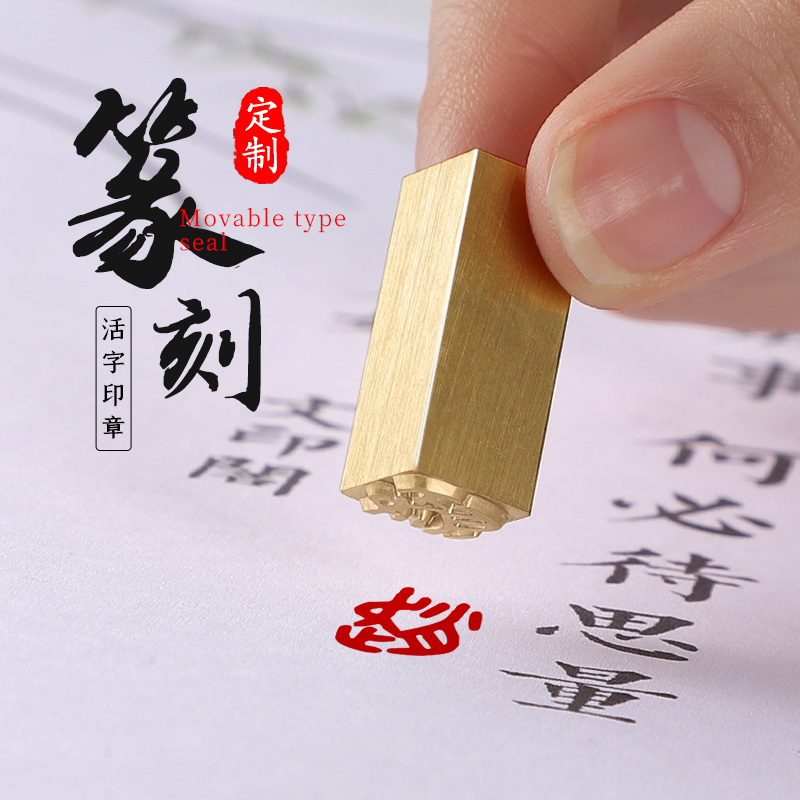 篆刻
定制
Movable type
seal
活字印章
文印閣
事何必待思量